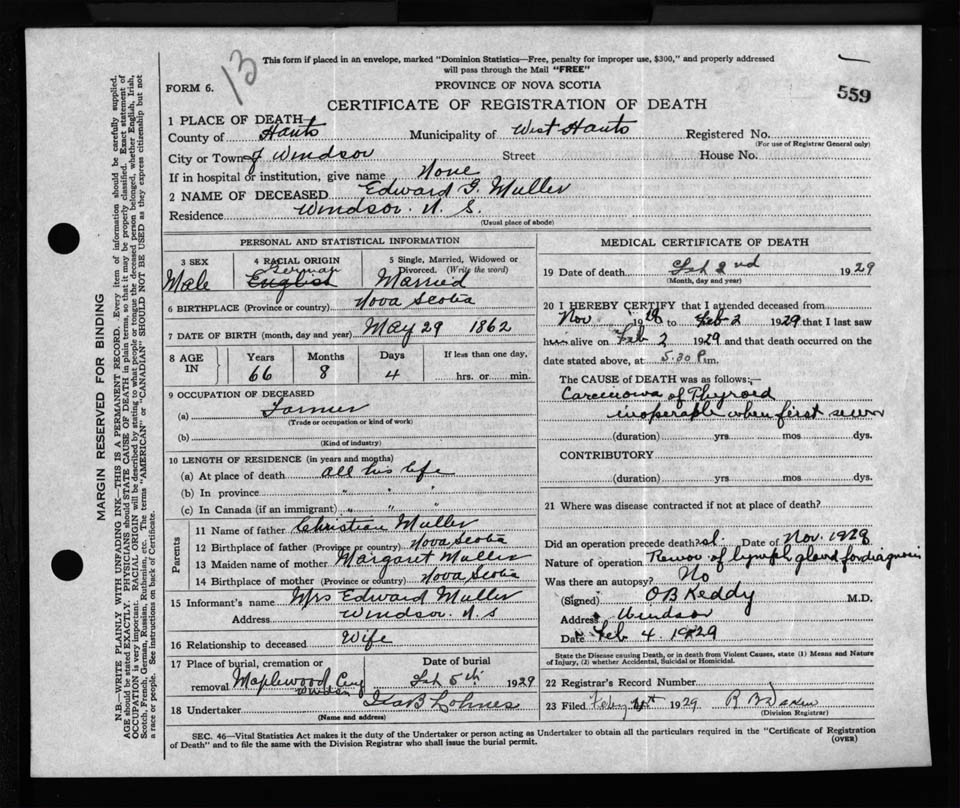 13
This form if placed in an envelope, marked "Dominion Statistics—Free, penalty for improper use, $300," and properly addressed
will pass through the Mail "FREE"
FORM 6.
PROVINCE OF NOVA SCOTIA
559
CERTIFICATE OF REGISTRATION OF DEATH
1 PLACE OF DEATH
County of Hants Municipality of West Hants Registered No.
(For use of Registrar General only)
City or Town of Windsor Street House No.
If in hospital or institution, give name None
2 NAME OF DECEASED Edward G. Muller
Residence Windsor. N. S.
(Usual place of abode)
PERSONAL AND STATISTICAL INFORMATION
3 SEX 4 RACIAL ORIGIN 5 Single, Married, Widowed or
Divorced. (Write the word)
German
Male English Married
6 BIRTHPLACE (Province or country) Nova Scotia
7 DATE OF BIRTH (month, day and year) May 29 1862
8 AGE IN Years Months Days If less than one day,
66 8 4 hrs. or min.
9 OCCUPATION OF DECEASED
(a) Farmer
(Trade or occupation or kind of work)
(b)
(Kind of industry)
10 LENGTH OF RESIDENCE (in years and months)
(a) At place of death all his life
(b) In province " " "
(c) In Canada (if an immigrant) " " "
Parents
11 Name of father Christian Muller
12 Birthplace of father (Province or country) Nova Scotia
13 Maiden name of mother Margaret Muller
14 Birthplace of mother (Province or country) Nova Scotia
15 Informant's name Mrs Edward Muller
Address Windsor. N. S
16 Relationship to deceased Wife
17 Place of burial, cremation or Date of burial
removal Maplewood Cmy Feb 5th 1929
Windsor
18 Undertaker Lohnes
(Name and address)
MEDICAL CERTIFICATE OF DEATH
19 Date of death Feb 2nd 1929
(Month, day and year)
20 I HEREBY CERTIFY that I attended deceased from
Nov 1928 to Feb 2 1929 that I last saw
him alive on Feb 2 1929 and that death occurred on the
date stated above, at 5.30 P.m.
The CAUSE OF DEATH was as follows:—
Carcinoma of Thyroid
inoperable when first seen
(duration) yrs mos dys.
CONTRIBUTORY
(duration) yrs mos dys.
21 Where was disease contracted if not at place of death?
Did an operation precede death? Date of Nov. 1928
Nature of operation Remov of lymph gland for diagnosis
Was there an autopsy? No
(Signed) O B Keddy M.D.
Address Windsor
Date Feb 4 1929
State the Disease causing Death, or in death from Violent Causes, state (1) Means and Nature
of Injury, (2) whether Accidental, Suicidal or Homicidal.
22 Registrar's Record Number
23 Filed Feby 1929
(Division Registrar)
SEC. 46—Vital Statistics Act makes it the duty of the Undertaker or person acting as Undertaker to obtain all the particulars required in the "Certificate of Registration
of Death" and to file the same with the Division Registrar who shall issue the burial permit.
(OVER)
MARGIN RESERVED FOR BINDING
N.B.—WRITE PLAINLY WITH UNFADING INK—THIS IS A PERMANENT RECORD. Every item of information should be carefully supplied.
AGE should be stated EXACTLY. PHYSICIANS should STATE CAUSE OF DEATH in plain terms, so that it may be properly classified. Exact statement of
OCCUPATION is very important. RACIAL ORIGIN will be described by stating to what people or tongue the deceased person belonged, whether English, Irish,
Scotch, French, German, Russian, Ruthenian, etc. The terms "AMERICAN" or "CANADIAN" SHOULD NOT BE USED as they express citizenship but not
a race or people. See instructions on back of Certificate.